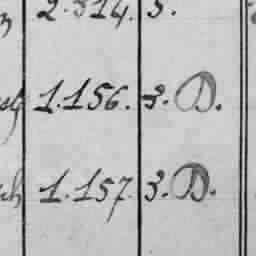 2.314. 3.
1.156. 3. D.
1.157. 3. D.